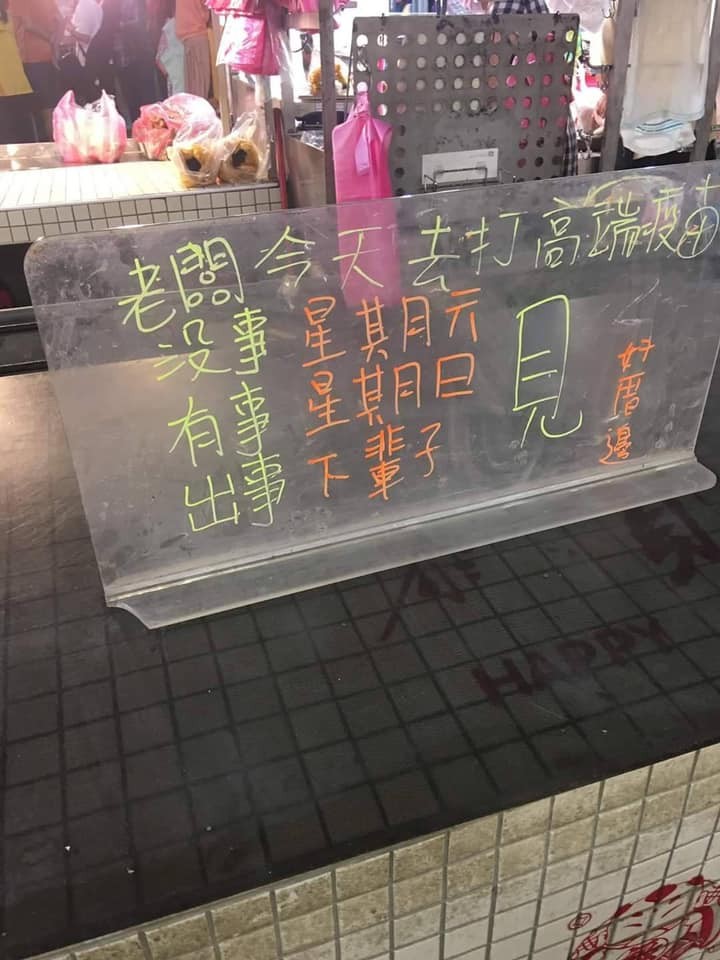 老闆今天去打高端疫苗
沒事 星期六
有事 星期日
出事 下輩子
見
好厝邊
HAPPY